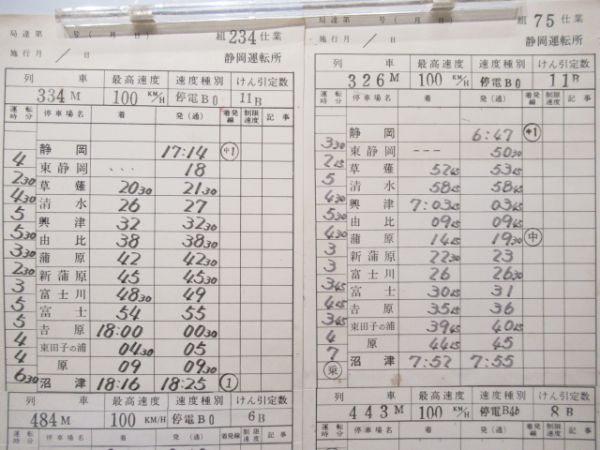 局達第 号( 月 日) 組 234 仕業
施行月 / 日 静岡運転所
列車 最高速度 速度種別 けん引定数
334M 100 KM/H 停電B0 11B
運転時分 停車場名 着 発(通) 着発線 制限速度 記事
静岡 17:14 中1
4 東静岡 ... 18
2 30 草薙 20 30 21 30
4 30 清水 26 27
5 興津 32 32 30
5 30 由比 38 38 30
3 30 蒲原 42 42 30
2 30 新蒲原 45 45 30
3 富士川 48 30 49
5 富士 54 55
5 吉原 18:00 00 30
4 東田子の浦 04 30 05
4 原 09 09 30
6 30 沼津 18:16 18:25 1
列車 最高速度 速度種別 けん引定数
484M 100 KM/H 停電B0 6B
運転時分 停車場名 着 発(通) 着発線 制限速度 記事
局達第 号( 月 日) 組 75 仕業
施行月 / 日 静岡運転所
列車 最高速度 速度種別 けん引定数
326M 100 KM/H 停電B0 11B
運転時分 停車場名 着 発(通) 着発線 制限速度 記事
静岡 6:47
3 30 東静岡 --- 50 30
2 15 草薙 52 45 53 45
5 清水 58 45 58 45
4 30 興津 7:03 45 03 45
5 30 由比 09 45 09 45
4 30 蒲原 14 45 19 30 中
3 新蒲原 22 30 23
3 富士川 26 26 30
3 45 富士 30 45 31
3 45 吉原 35 45 36
3 45 東田子の浦 39 45 40 45
4 原 44 45 45
7 沼津 7:52 7:55
乗
列車 最高速度 速度種別 けん引定数
443M 100 KM/H 停電B46 8B
運転時分 停車場名 着 発(通) 着発線 制限速度 記事